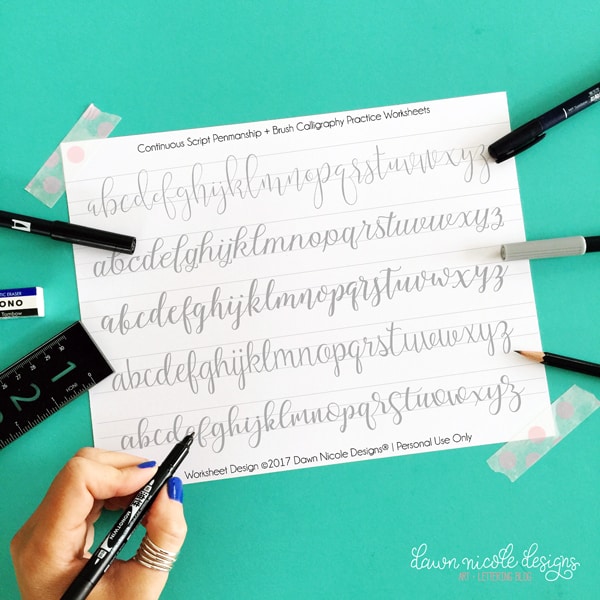 Continuous Script Penmanship + Brush Calligraphy Practice Worksheets
abcdefghijklmnopqrstuvwxyz
abcdefghijklmnopqrstuvwxyz
abcdefghijklmnopqrstuvwxyz
abcdefghijklmnopqrstuvwxyz
abcdefghijklmnopqrstuvwxyz
Worksheet Design ©2017 Dawn Nicole Designs® | Personal Use Only
ERASER
ONO
Tombow
1 2
INCH
MONOTWIN
dawn nicole designs
ART + LETTERING BLOG